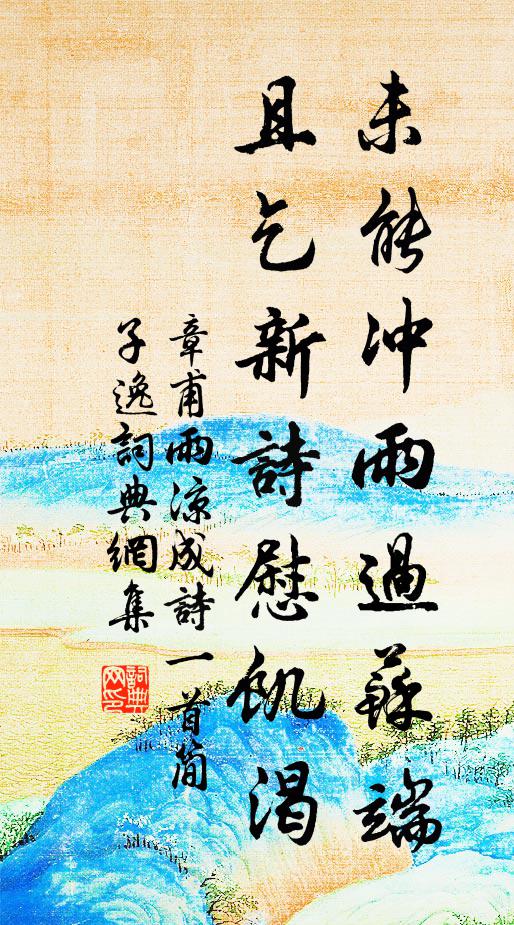 未能冲雨過蘇端
且乞新詩慰飢渴
章甫雨凉成詩一首簡
子逸詞典網集
詞典
网印